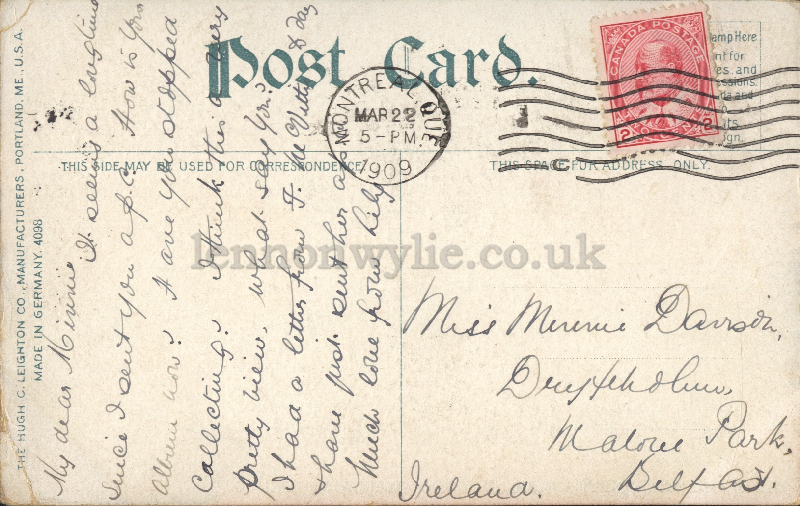 THE HUGH C. LEIGHTON CO., MANUFACTURERS, PORTLAND, ME., U.S.A.
MADE IN GERMANY. 4098
Post Card.
THIS SIDE MAY BE USED FOR CORRESPONDENCE
THIS SPACE FOR ADDRESS ONLY.
MONTREAL, QUE.
MAR 22
5-PM
1909
CANADA POSTAGE
2 CENTS 2
amp Here
nt for
es, and
essions.
da and
its
ign.
My dear Minnie
It seems a longtime
since I sent you a p.c. How is your
Album now? Have you stopped
collecting? I think this a very
pretty view, what say you?
I had a letter from F. to day
& have just sent her a
Much love from Lily
Miss Minnie Davison,
Malone Park,
Belfast.
Ireland.
lennonwylie.co.uk